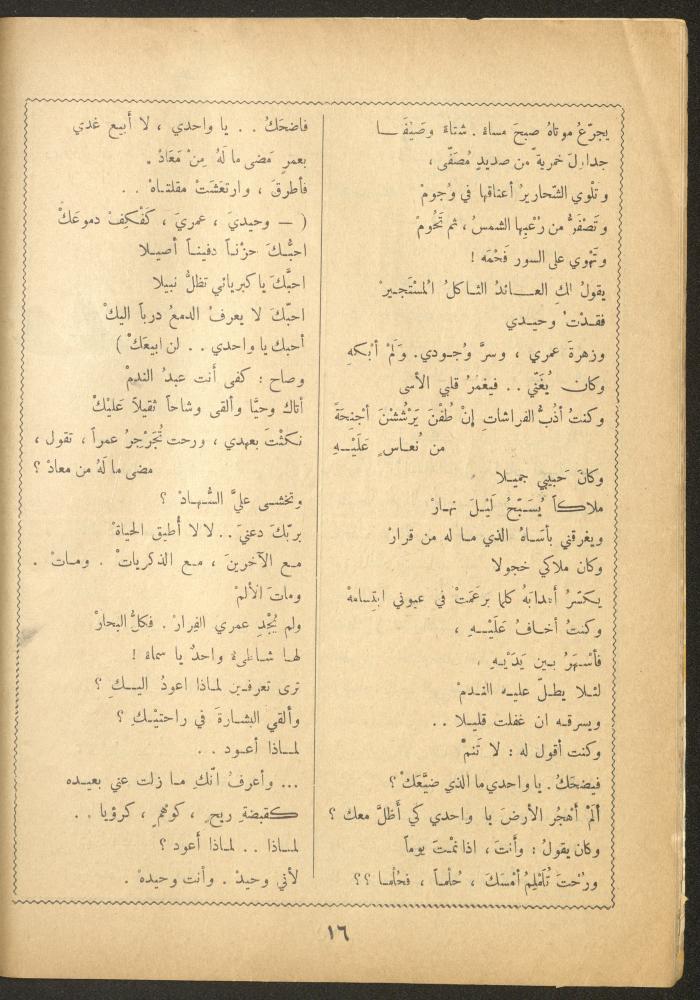 يجرّعُ موتاهُ صبحَ مساءَ . شتاءً وصَيْفَـــا
جداولَ خمريةً من صديدٍ مُصَفّى ،
وتَلْوي الشّحاريرُ أعناقها في وُجومْ
وتَصْفَرُّ من رُعْبِها الشمسُ ، ثم تَحُومْ
وتَهْوي على السور فَحْمَه !
يقولُ لكِ العـــائدُ الثـاكلُ المُسْتَجـيرْ
فقـدْتُ وحيـدي
وزهرةَ عمري ، وسرَّ وُجـودي. وَلَمْ أبْكهِ
وكان يُغَنّي . . فيغمُرُ قلبي الأسى
وكنتُ أذُبُّ الفراشاتِ إنْ طُفْنَ يَرْشُشْنَ أجْنِحَةً
من نُعـاسٍ عَلَيْــهِ
وكانَ حَبيبي جميـلا
ملاكـاً يُسَـبّحُ لَيْـلَ نهـارْ
ويغرقني بأسَـاهُ الذي مـا له من قرارْ
وكان ملاكي خجولا
يكسّرُ أجفانهُ كلما برعَمَتْ في عيوني ابتسامهْ
وكنتُ أخـافُ عَلَيْـــهِ ،
فأسْـهَرُ بـين يَدَيْـهِ ،
لئـلا يطـلّ عليـه النـدمْ
ويسرقـه ان غفلت قليـلا . .
وكنت أقول له : لا تَنمْ
فيضحَكُ . يا واحدي ما الذي ضيَّعَكْ ؟
ألَمْ أهْجُر الأرضَ يا واحدي كي أظَلَّ معك ؟
وكان يقولُ : وأنتَ ، اذا نمْتَ يوماً
ورُحْتَ تُلَمْلِمُ أمْسَكَ ، حُلْمـاً ، فحُلْمـا ؟؟
فاضحَكُ . . يا واحدي ، لا أبيع غدي
بعمرٍ مَضى ما لَهُ مِنْ مَعَادْ .
فأطرقَ ، وارتعَشَتْ مقلتـاهْ . .
( — وحيديَ ، عمريَ ، كَفْكِفْ دموعَكْ
احبُّـكَ حزْنـاً دفينـاً أصيـلا
احبَّكَ يا كبريائي تظلُّ نبيلا
احبّكَ لا يعرفُ الدمعُ درباً اليكْ
أحبك يا واحدي . . لن ابيعَكْ )
وصاح : كفى أنت عبدُ الندمْ
أتاك وحيَّا وألقى وشاحاً ثقيلاً عَليْكْ
نكثْتَ بعهدي ، ورحت تُجَرْجِرُ عمراً ، تقول ،
مضى ما لَهُ من معادْ ؟
وتخشـى عليَّ السُّـهـادْ ؟
بربّكَ دعنيَ . . لا لا أُطيق الحياةْ
مـع الآخرينَ ، مـع الذكرياتْ . ومـاتْ .
وماتَ الألمْ
ولم يُجْدِ عمري الفِرارْ . فكلُّ البحارْ
لهـا شـاطىءٌ واحدٌ يا سماءُ !
ترى تعرفـين لمـاذا اعودُ اليـكِ ؟
وألقي البشـارةَ في راحتيْـكِ ؟
لمـاذا أعـود . .
... وأعرفُ انّكِ مـا زلت عني بعيـده
كقبضةِ ريحٍ ، كوهْمٍ ، كرؤيا . .
لمـاذا . . لمـاذا أعود ؟
لأني وحيدْ . وأنت وحيدهْ .
١٦